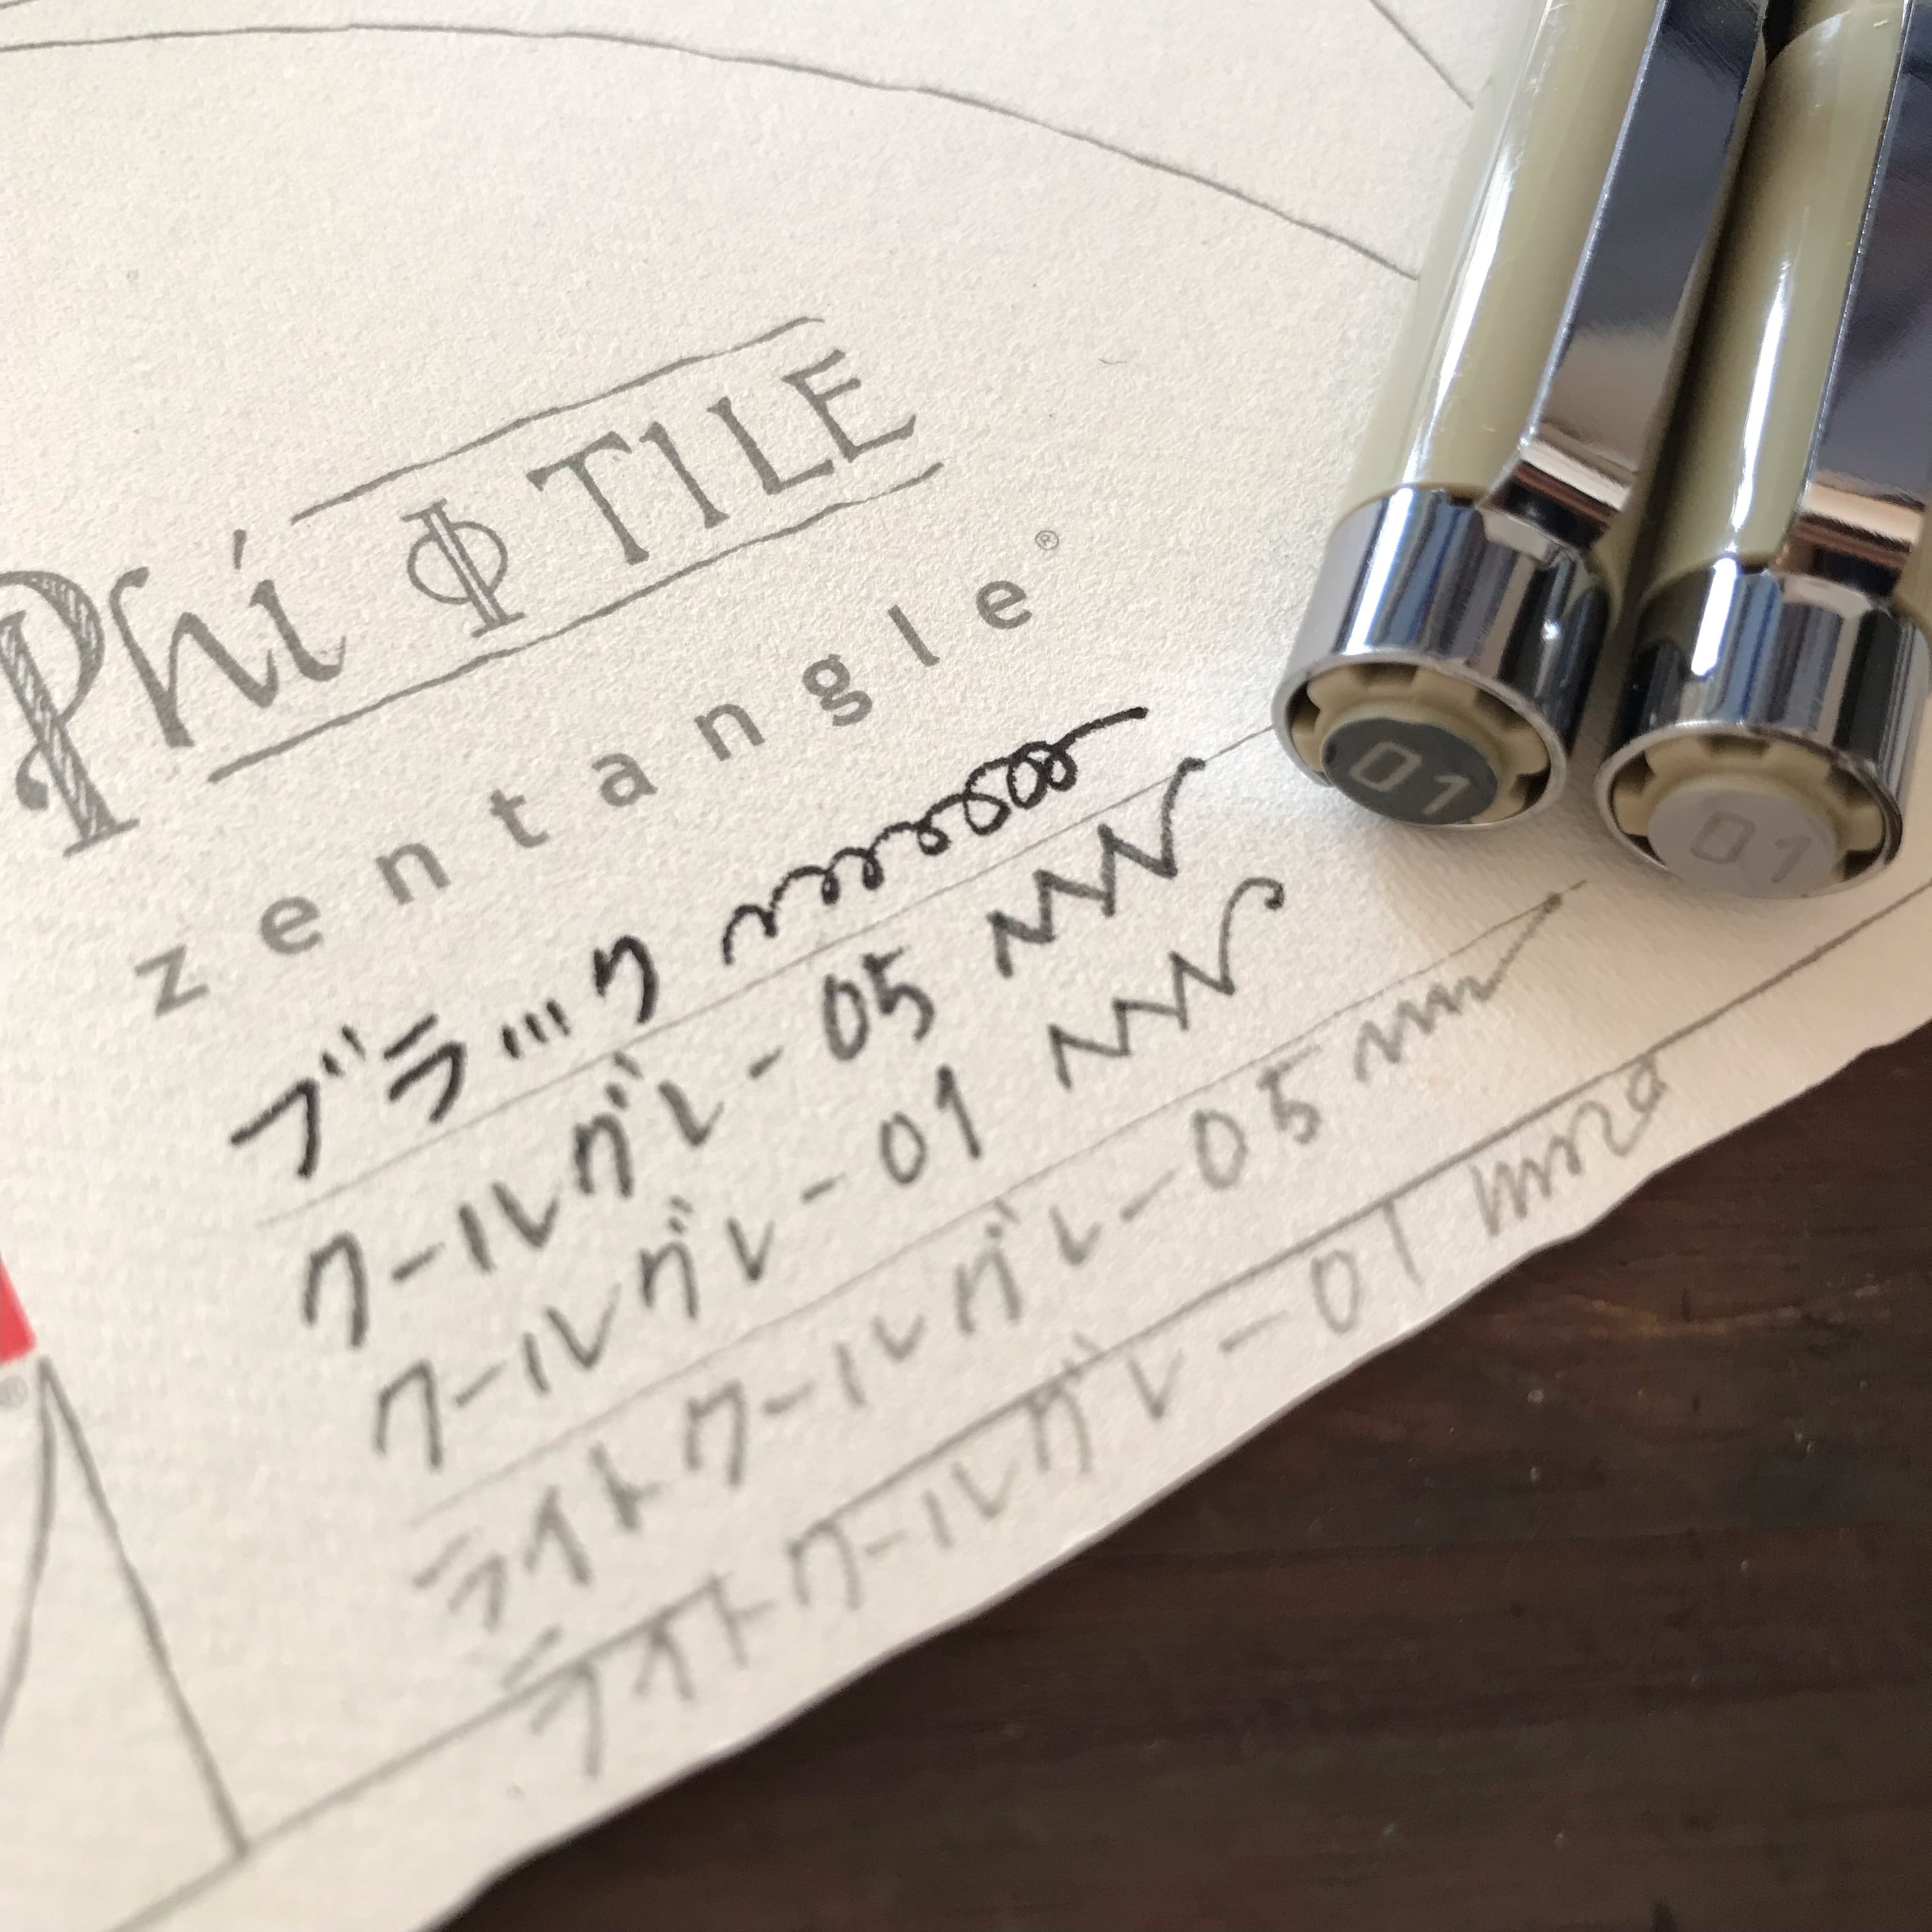 Phi Φ TILE
zentangle®
ブラック
クールグレー05
クールグレー01
ライトクールグレー05
ライトクールグレー01
®
01
01